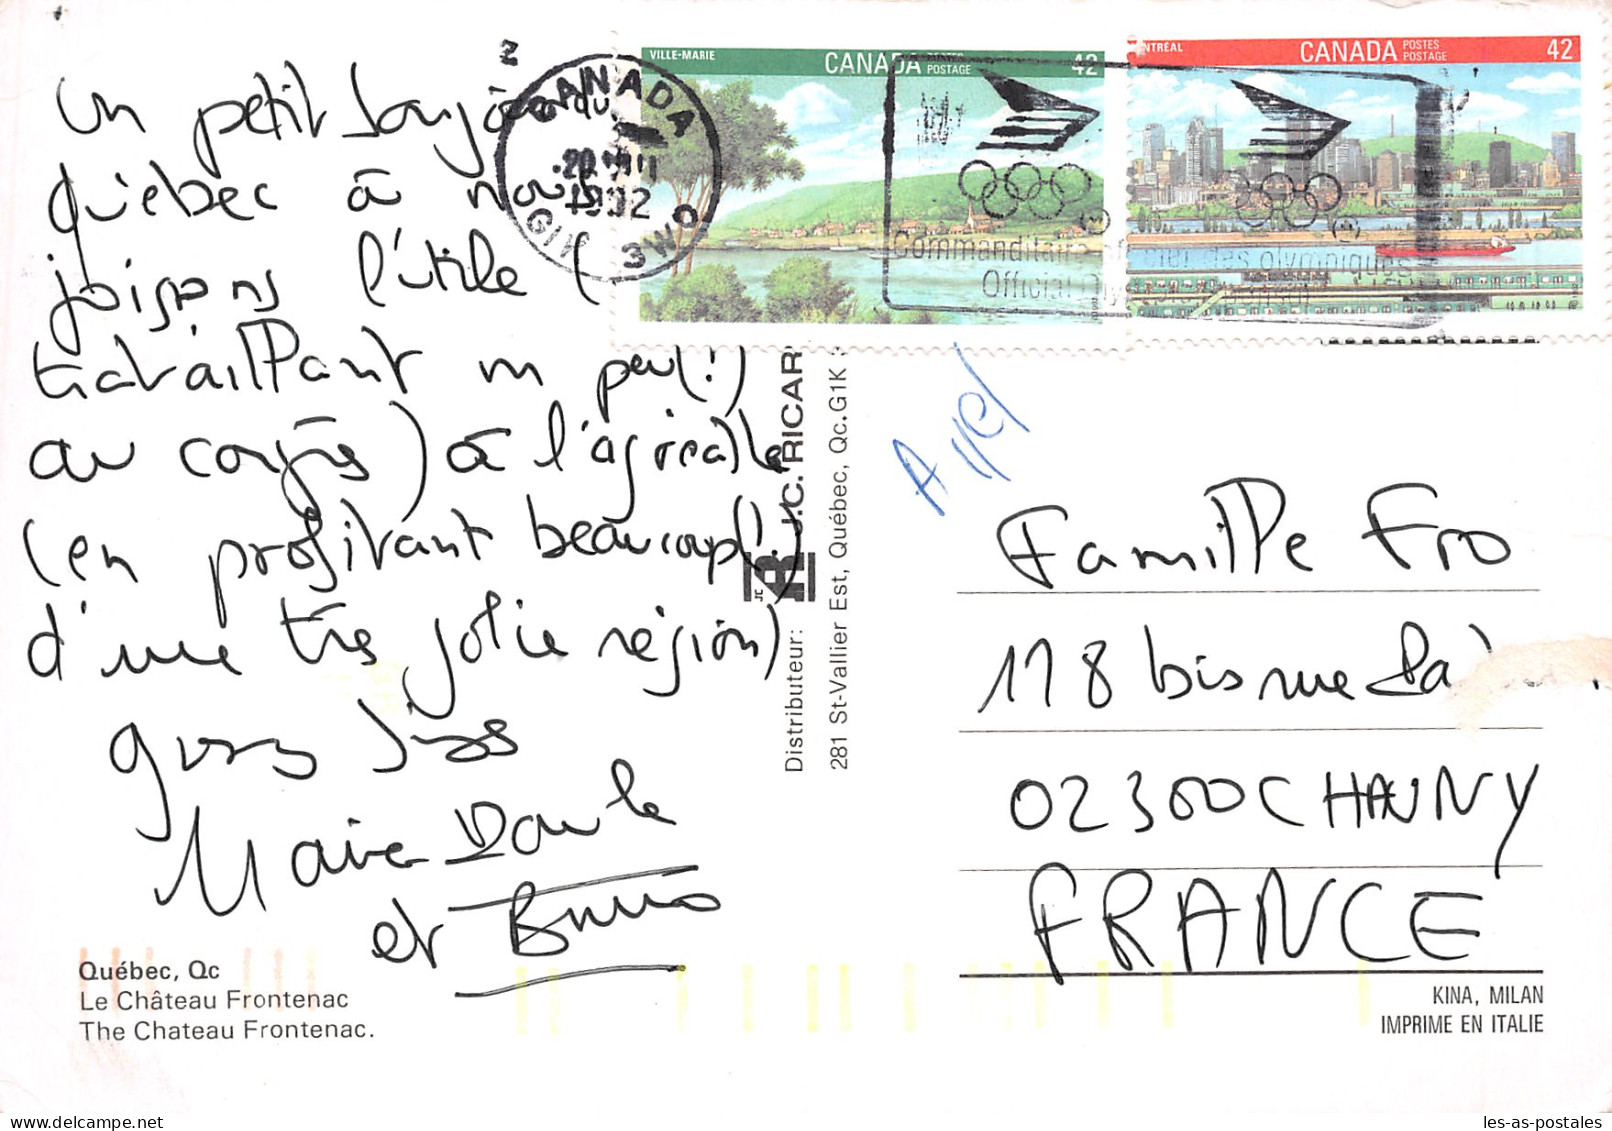 Un petit bonjour du
Québec à nous
joignons l'utile (
travaillant un peu!)
au congrès) à l'agréable
(en profitant beaucoup!)
d'une très jolie région)
gros bises
Marie Paule
et Bruno
Québec, Qc
Le Château Frontenac
The Chateau Frontenac.
Distributeur:
J.C. RICAR
281 St-Vallier Est, Québec, Qc. G1K
JC
CANADA
1992
VILLE-MARIE CANADA POSTES POSTAGE 42
NTRÉAL CANADA POSTES POSTAGE 42
Commanditaire des olympiques
Official
Famille Fro
118 bis rue
02300 CHAUNY
FRANCE
KINA, MILAN
IMPRIME EN ITALIE
les-as-postales.com